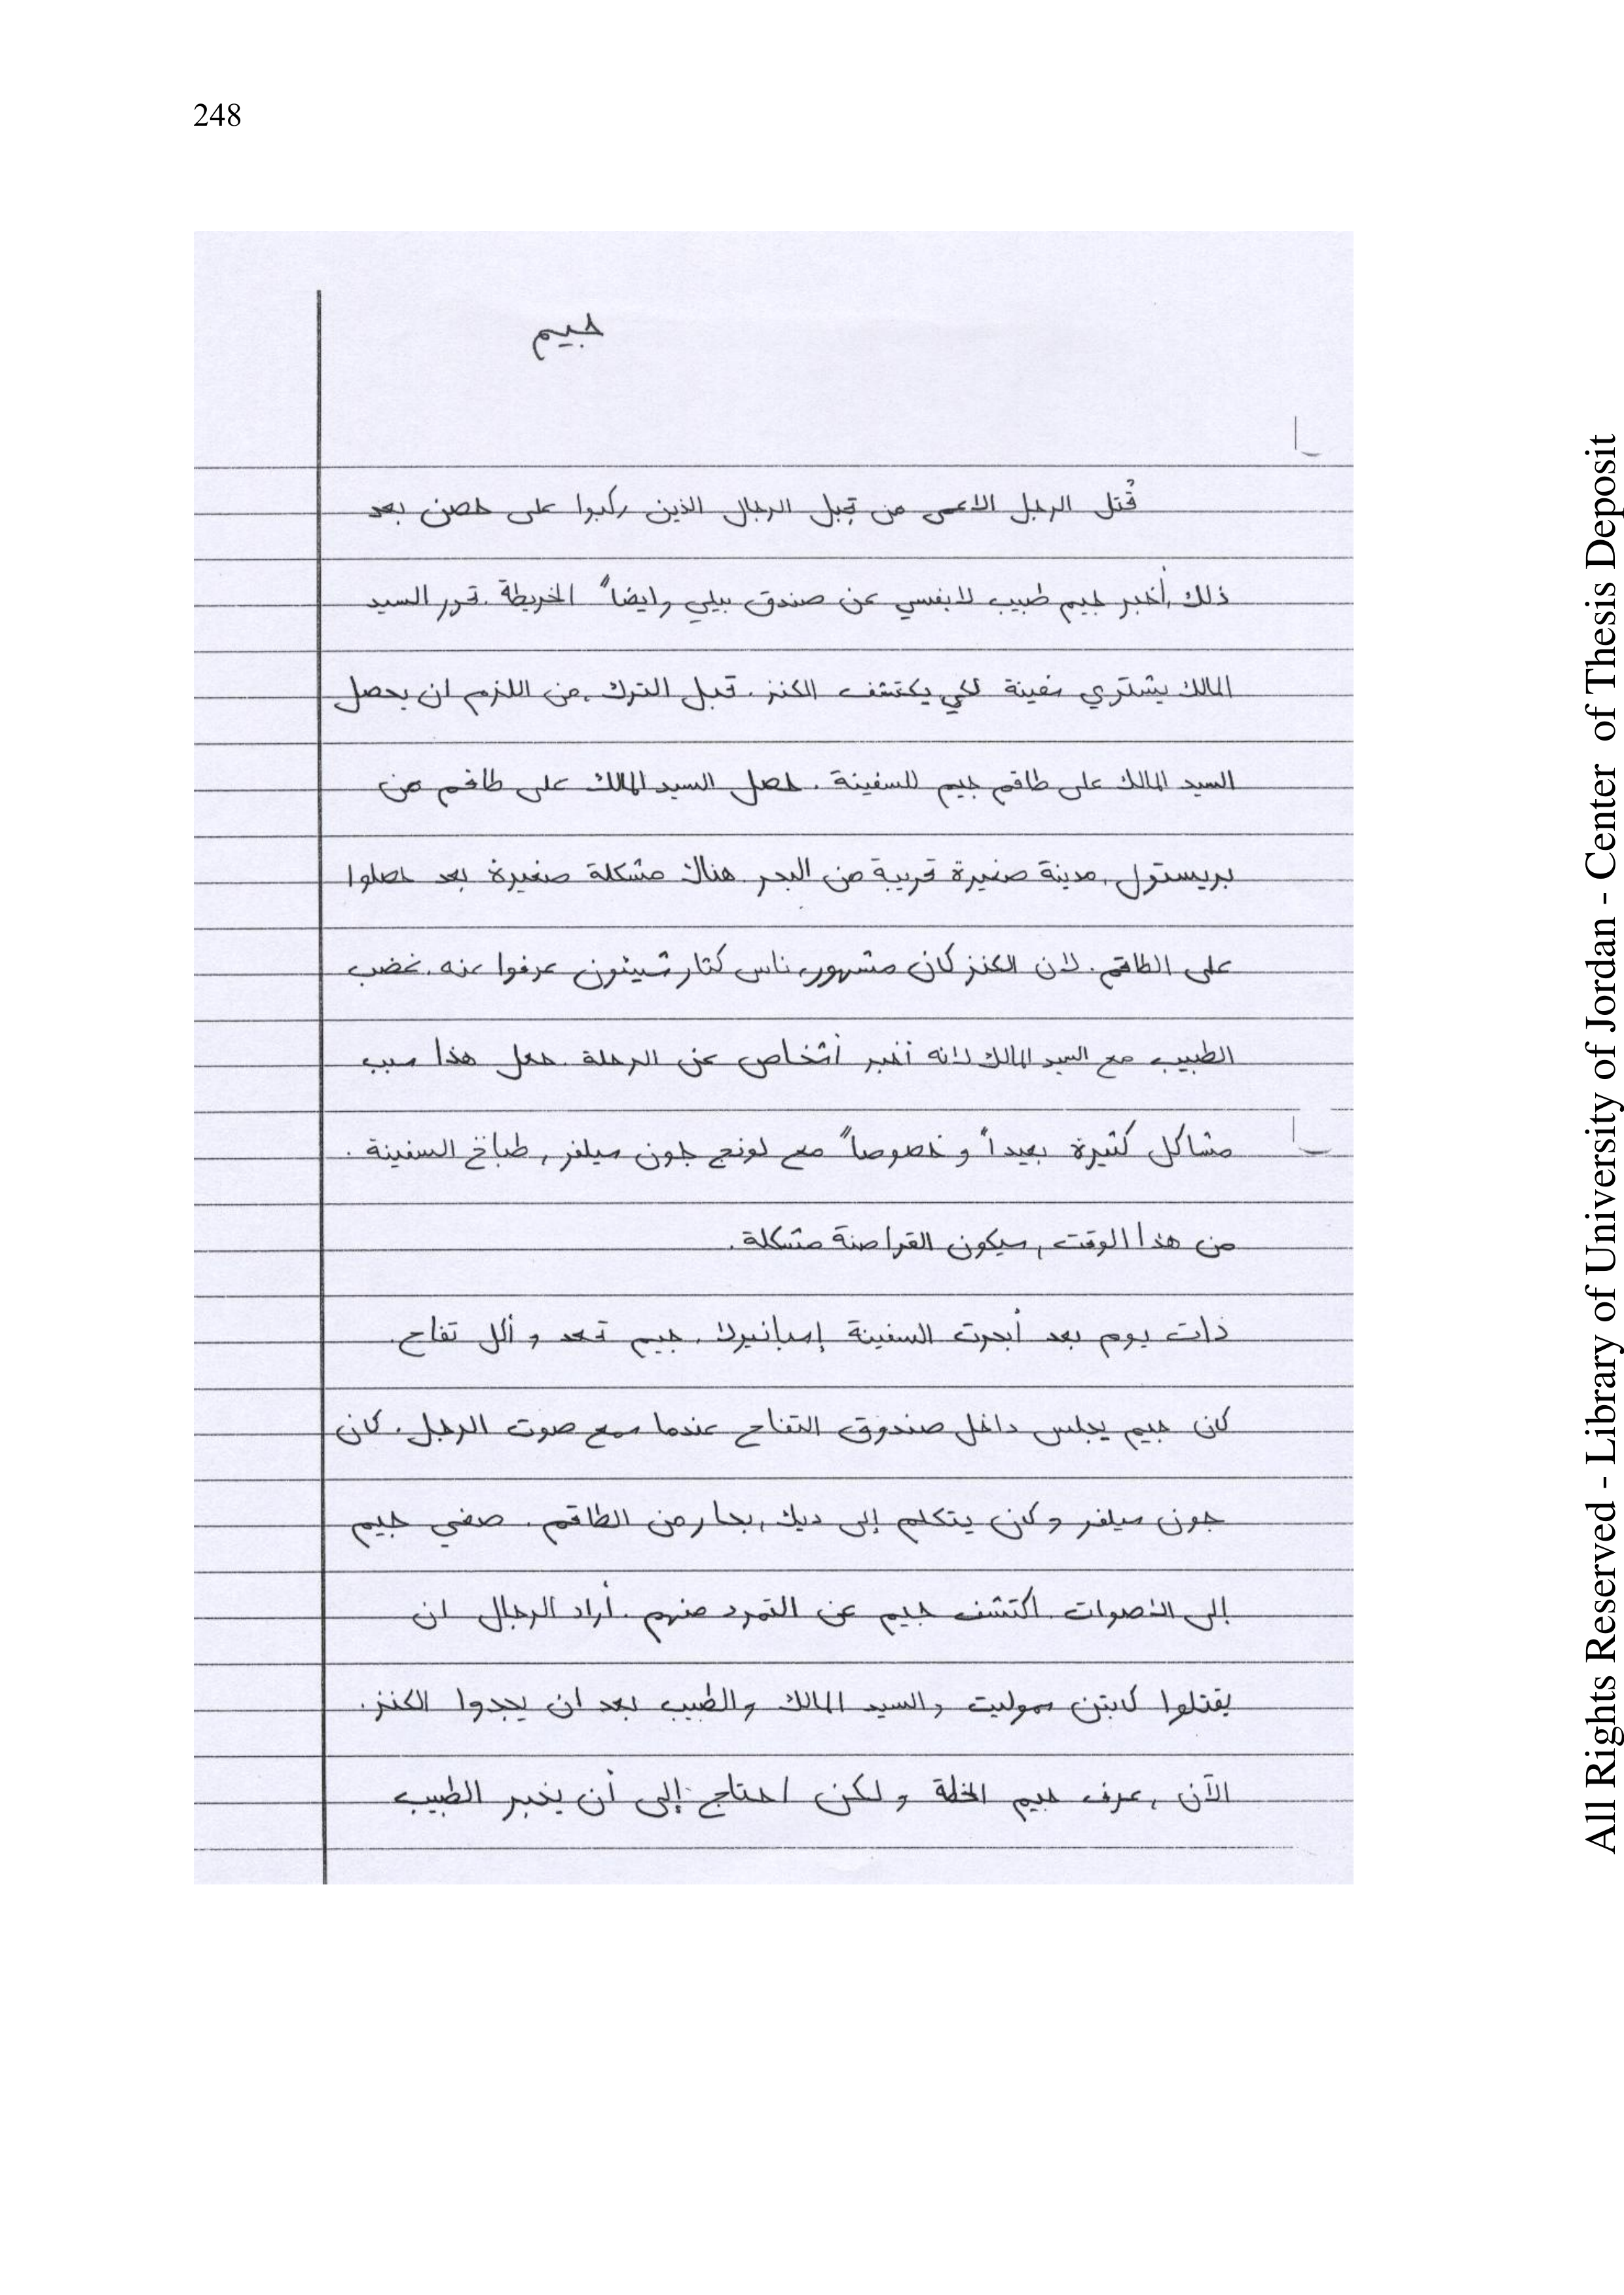 248
جيم
قُتل الرجل الاعمى من قِبل الرجال الذين ركبوا على حصن بعد
ذلك, أخبر جيم طبيب لايفسي عن صندق بيلي وايضاً الخريطة. قرر السيد
المالك يشتري سفينة لكي يكتشف الكنز. قبل الترك, من اللزم ان يحصل
السيد المالك على طاقم جيم للسفينة. حصل السيد المالك على طاقم من
بريستول, مدينة صغيرة قريبة من البحر. هناك مشكلة صغيرة بعد حصلوا
على الطاقم. لان الكنز كان مشهور, ناس كتار شيئون عرفوا عنه. غضب
الطبيب مع السيد المالك لانه أخبر أشخاص عن الرحلة. جعل هذا سبب
مشاكل كثيرة بعيداً و خصوصاً مع لونج جون سيلفر, طباخ السفينة.
من هذا الوقت, سيكون القراصنة مشكلة.
ذات يوم بعد أبحرت السفينة إسبانيولا, جيم قعد و أكل تفاح.
كان جيم يجلس داخل صندوق التفاح عندما سمع صوت الرجل. كان
جون سيلفر و كان يتكلم إلى ديك, بحار من الطاقم. صغي جيم
إلى الأصوات. اكتشف جيم عن التمرد منهم. أراد الرجال ان
يقتلوا كابتن سموليت والسيد المالك والطبيب بعد ان يجدوا الكنز.
الآن, عرف جيم الخطة ولكن احتاج إلى أن يخبر الطبيب
All Rights Reserved - Library of University of Jordan - Center of Thesis Deposit